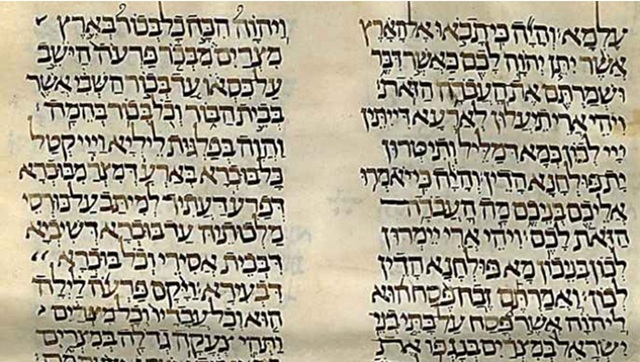 עלמא׃ והיה כי תבאו אל הארץ
אשר יתן יהוה לכם כאשר דבר
ושמרתם את העבדה הזאת׃
ויהי ארי תעלון לארעא דייתין
ייי לכון כמא דמליל ותיטרון
ית פולחנא הדין׃ והיה כי יאמרו
אליכם בניכם מה העבדה
הזאת לכם׃ ויהי ארי יימרון
לכון בניכון מא פולחנא הדין
לכון׃ ואמרתם זבח פסח הוא
ליהוה אשר פסח על בתי בני
ישראל במצרים בנגפו את
ויהוה הכה כל בכור בארץ
מצרים מבכר פרעה הישב
על כסאו עד בכור השבי אשר
בבית הבור וכל בכור בהמה׃
והוה בפלגות ליליא וייי קטל
כל בוכרא בארע דמצר מבוכרא
דפרעה דעתיד למיתב על כורסי
מלכותיה עד בוכרא דשיביא
דבבית אסירי וכל בוכרא
דבעירא׃ ויקם פרעה לילה
הוא וכל עבדיו וכל מצרים
ותהי צעקה גדלה במצרים